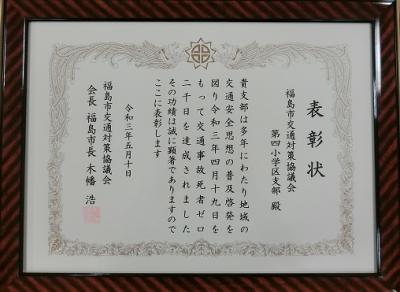 表彰状
福島市交通対策協議会
第四小学区支部 殿
貴支部は多年にわたり地域の
交通安全思想の普及啓発を
図り令和三年四月十九日を
もって交通事故死者ゼロ
二千日を達成されました
その功績は誠に顕著でありますので
ここに表彰します
令和三年五月十日
福島市交通対策協議会
会長 福島市長 木幡 浩